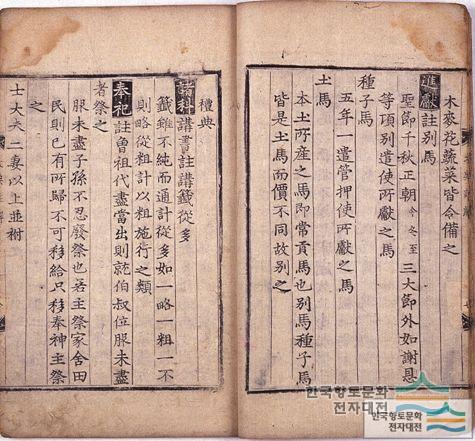 木麥花蔬菜皆令備之
進獻註別馬
聖節千秋正朝今冬至三大節外如謝恩
等項別遣使所獻之馬
種子馬
五年一遣管押使所獻之馬
土馬
本土所產之馬即常貢馬也別馬種子馬
皆是土馬而價不同故別之
禮典
諸科講書註講籤從多
籤雖不純而通計從多如一略一粗一不
則略從粗計以粗施行之類
奉祀註曾祖代盡當出則就伯叔位服未盡
者祭之
服未盡子孫不忍廢祭也若主祭家舍田
民則已有所歸不可移給只移奉神主祭
之
士大夫二妻以上並祔
한국향토문화
전자대전
한국향토문화
전자대전